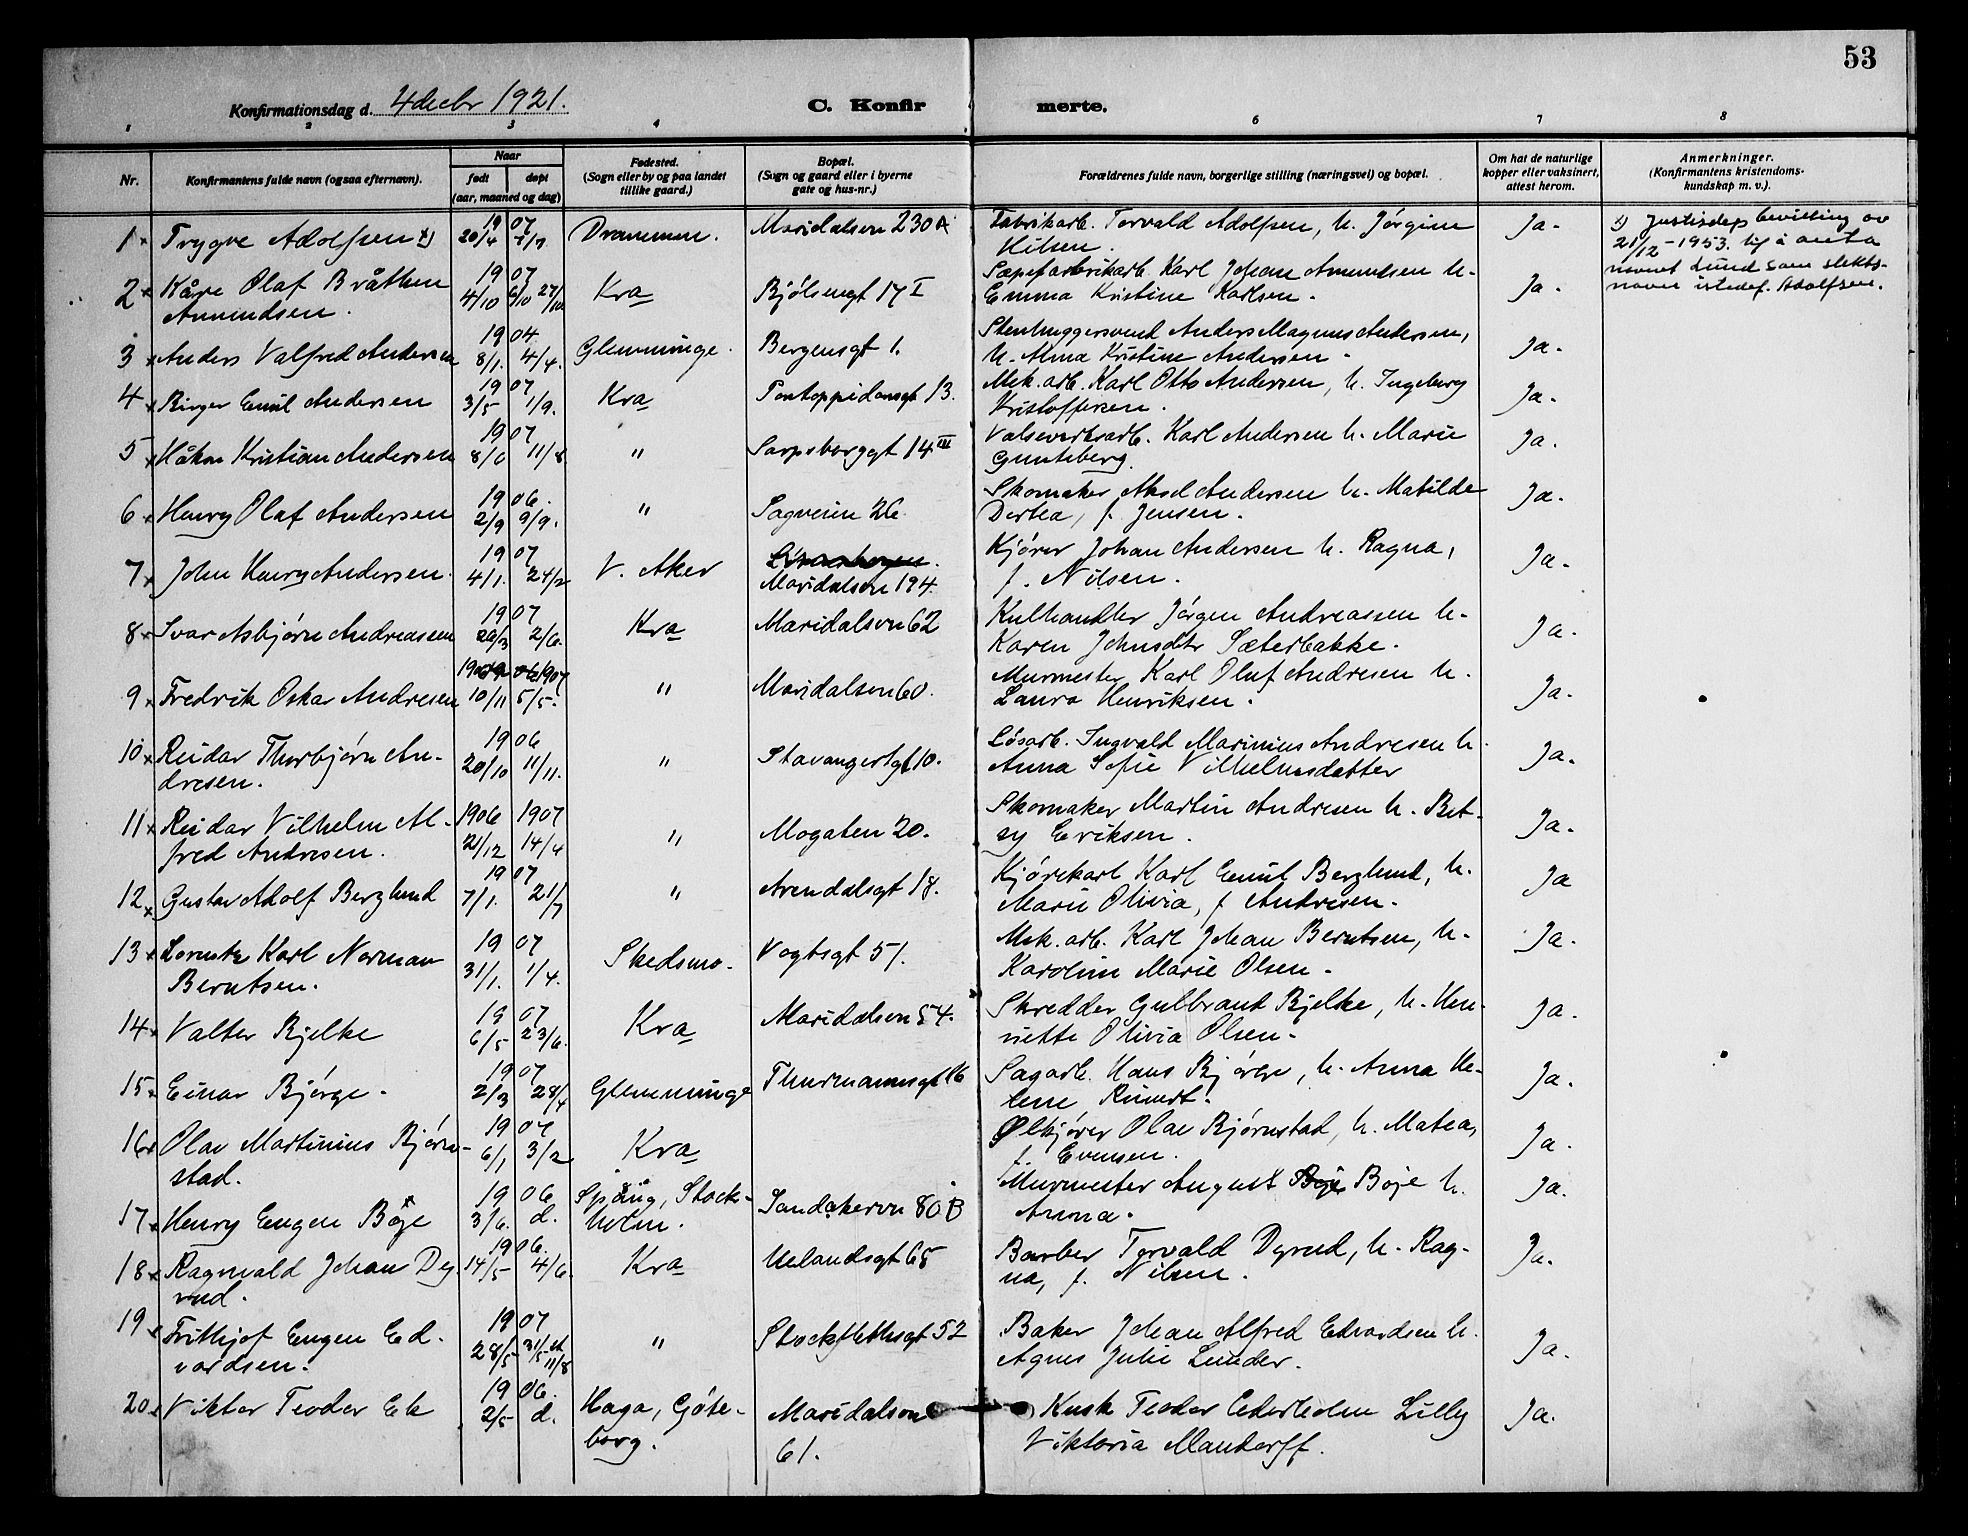 53
Konfirmationsdag d. 4 decbr 1921.
C. Konfir
merte.
1 2 3 4 6 7 8
Nr.
Konfirmantens fulde navn (ogsaa efternavn).
Naar
født døpt
(aar, maaned og dag)
Fødested.
(Sogn eller by og paa landet
tillike gaard.)
Bopæl.
(Sogn og gaard eller i byerne
gate og hus-nr.)
Forældrenes fulde navn, borgerlige stilling (næringsvei) og bopæl.
Om hat de naturlige
kopper eller vaksinert,
attest herom.
Anmerkninger.
(Konfirmantens kristendoms-
kundskap m. v.).
1 Trygve Adolfsen x) 1907 20/4 7/7 Drammen. Maridalsvn 230A Fabrikarb. Torvald Adolfsen, h. Jørgine
Nilsen. Ja.
x) Justisdeps bevilling av
21/12-1953 til å anta
navnet Lund som slekts-
navn istedef. Adolfsen.
2 Kåre Olaf Bråthen
Amundsen. 1907 4/10 27/10 Kra Bjølsengt 17 I Sæpefabrikarb. Karl Johan Amundsen h.
Emma Kristine Karlsen. Ja.
3 Anders Valfred Andersen 1904 8/1. 4/4. Glemminge. Bergensgt 1. Stenhuggersvend Anders Magnus Andersen,
h. Alma Kristine Andersen. Ja.
4 Birger Emil Andersen 1907 3/5 1/9. Kra Pontoppidansgt 13. Mek. arb. Karl Otto Andersen, h. Ingeborg
Kristoffersen. Ja.
5 Håkon Kristian Andersen 1907 8/6 11/8 " Sarpsborggt 14 III Valseverksarb. Karl Andersen h. Marie
Guntsberg. Ja.
6 Henry Olaf Andersen 1906. 2/9 9/9. " Sagveien 26. Skomaker Aksel Andersen h. Matilde
Dortea, f. Jensen. Ja.
7 John Henry Andersen. 1907 4/1. 24/2 V. Aker
Maridalsvn 194. Kjører Johan Andersen h. Ragna,
f. Nilsen. Ja.
8 Ivar Asbjørn Andreassen 1907 2/6. Kra Maridalsvn 62 Kulhandler Jørgen Andreassen h.
Karen Johnsdtr Sæterbakke. Ja.
9 Fredrik Oskar Andresen 1906 1907 10/11 5/5. " Maridalsvn 60. Murmester Karl Oluf Andresen h.
Laura Henriksen. Ja.
10 Reidar Thorbjørn An-
dresen. 1906 20/10 11/11. " Stavangergt 10. Løsarb. Ingvald Marinius Andresen h.
Anna Sofie Vilhelmsdatter Ja.
11 Reidar Vilhelm Al-
fred Andresen. 1906 1907 21/12 14/4 " Mogaten 20. Skomaker Martin Andresen h. Bet-
sy Eriksen. Ja.
12 Gustav Adolf Berglund 1907 7/1. 21/7 " Arendalsgt 18. Kjørekarl Karl Emil Berglund, h.
Marie Olivia, f. Andresen. Ja
13 Lorentz Karl Norman
Berntsen. 1907 31/1. 1/4. Skedsmo. Vogtsgt 51. Mek. arb. Karl Johan Berntsen, h.
Karoline Marie Olsen. Ja.
14 Valter Bjelke 1907 6/5 23/6. Kra Maridalsvn 54. Skredder Gulbrand Bjelke, h. Hen-
riette Olivia Olsen. Ja.
15 Einar Bjørge. 1907 2/3 28/4 Glemminge Thurmannsgt 16 Sagarb. Hans Bjørge, h. Anna He-
lene Ja.
16 Olav Martinius Bjørn-
stad. 1907 6/1 3/2 Kra Ølkjører Olav Bjørnstad, h. Matea,
f. Evensen. Ja.
17 Henry Eugen Böje 1906 3/6. d. Spånga, Stock-
holm. Sandakervn 80B Murmester August Böje h.
Anna. Ja.
18 Ragnvald Johan Dy-
rud. 1906. 14/5 4/6. Kra Uelandsgt 65 Barber Torvald Dyrud, h. Rag-
na, f. Nilsen. Ja.
19 Frithjof Eugen Ed-
vardsen. 1907 28/5 31/5 st. 11/8 " Stockflethsgt 52 Baker Johan Alfred Edvardsen h.
Agnes Julie Lunder. Ja.
20 Viktor Teodor Ek 1906. 2/5 d. Haga, Göte-
borg. Maridalsvn
61. Kusk Teodor Cederholm Lilly
Viktoria Ja.